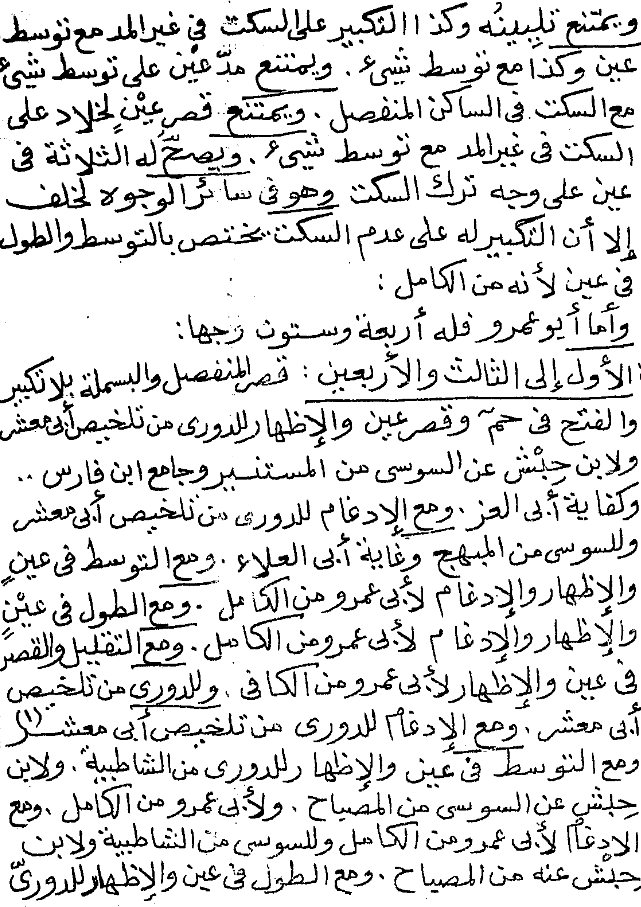 ويمتنع تليينُه وكذا التكبير على السكت في غير المد مع توسط
عين وكذا مع توسط شيء . ويمتنع مدّ عيْن على توسط شيء
مع السكت في الساكن المنفصل . ويمتنع قصر عيْنٍ لخلاد على
السكت في غير المد مع توسط شيء . ويصحّ له الثلاثة في
عين على وجه ترك السكت وهو في سائر الوجوه لخلف
إلا أن التكبير له على عدم السكت يختص بالتوسط والطول
في عين لأنه من الكامل :
وأما أبو عمرو فله أربعة وستون وجها :
الأول إلى الثالث والأربعين : قصر المنفصل والبسملة بلا تكبير
والفتح في حم وقصر عين والإظهار للدورى من تلخيص أبي معشر
ولابن حِبْش عن السوسى من المستنير وجامع ابن فارس ..
وكفاية أبى العز . ومع الإدغام للدورى من تلخيص أبى معشر
وللسوسى من المبهج وغاية أبى العلاء . ومع التوسط في عينٍ
والإظهار والإدغام لأبى عمرو من الكامل . ومع الطول في عيْنٍ
والإظهار والإدغام لأبى عمرو من الكامل . ومع التقليل والقصر
في عين والإظهار لأبى عمرو من الكافى . وللدورى من تلخيص
أبى معشر . ومع الإدغام للدورى من تلخيص أبى معشر (١)
ومع التوسط في عين والإظهار للدورى من الشاطبية . ولابن
حِبْش عن السوسى من المصباح . ولأبى عمرو من الكامل . ومع
الإدغام لأبى عمرو من الكامل وللسوسى من الشاطبية ولابن
حبْش عنه من المصباح . ومع الطول في عين والإظهار للدورىّ